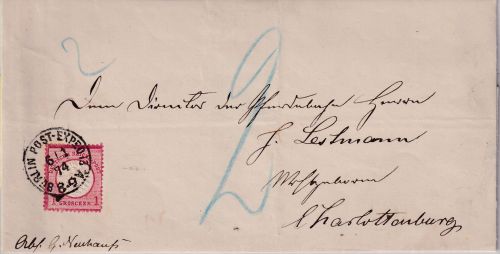 2.
2
Dem Director der Pferdebahn Herrn
J. Lestmann
Wohlgeboren
Charlottenburg
BERLIN POST-EXPED.
6 1
74
8-9
1 GROSCHEN 1
Abs. G. Neuhauß